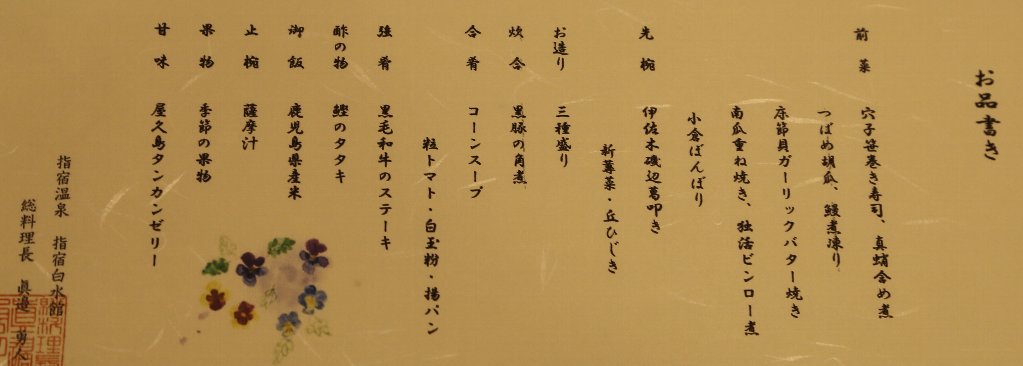 お品書き
前菜 穴子笹巻き寿司、真蛸含め煮
つばめ胡瓜、鰻煮凍り
床節貝ガーリックバター焼き
南瓜重ね焼き、独活ビンロー煮
小倉ぼんぼり
先椀 伊佐木磯辺葛叩き
新蓴菜・丘ひじき
お造り 三種盛り
炊合 黒豚の角煮
合肴 コーンスープ
粒トマト・白玉粉・揚パン
強肴 黒毛和牛のステーキ
酢の物 鰹のタタキ
御飯 鹿児島県産米
止椀 薩摩汁
果物 季節の果物
甘味 屋久島タンカンゼリー
指宿温泉 指宿白水館
総料理長 眞邉 勇人